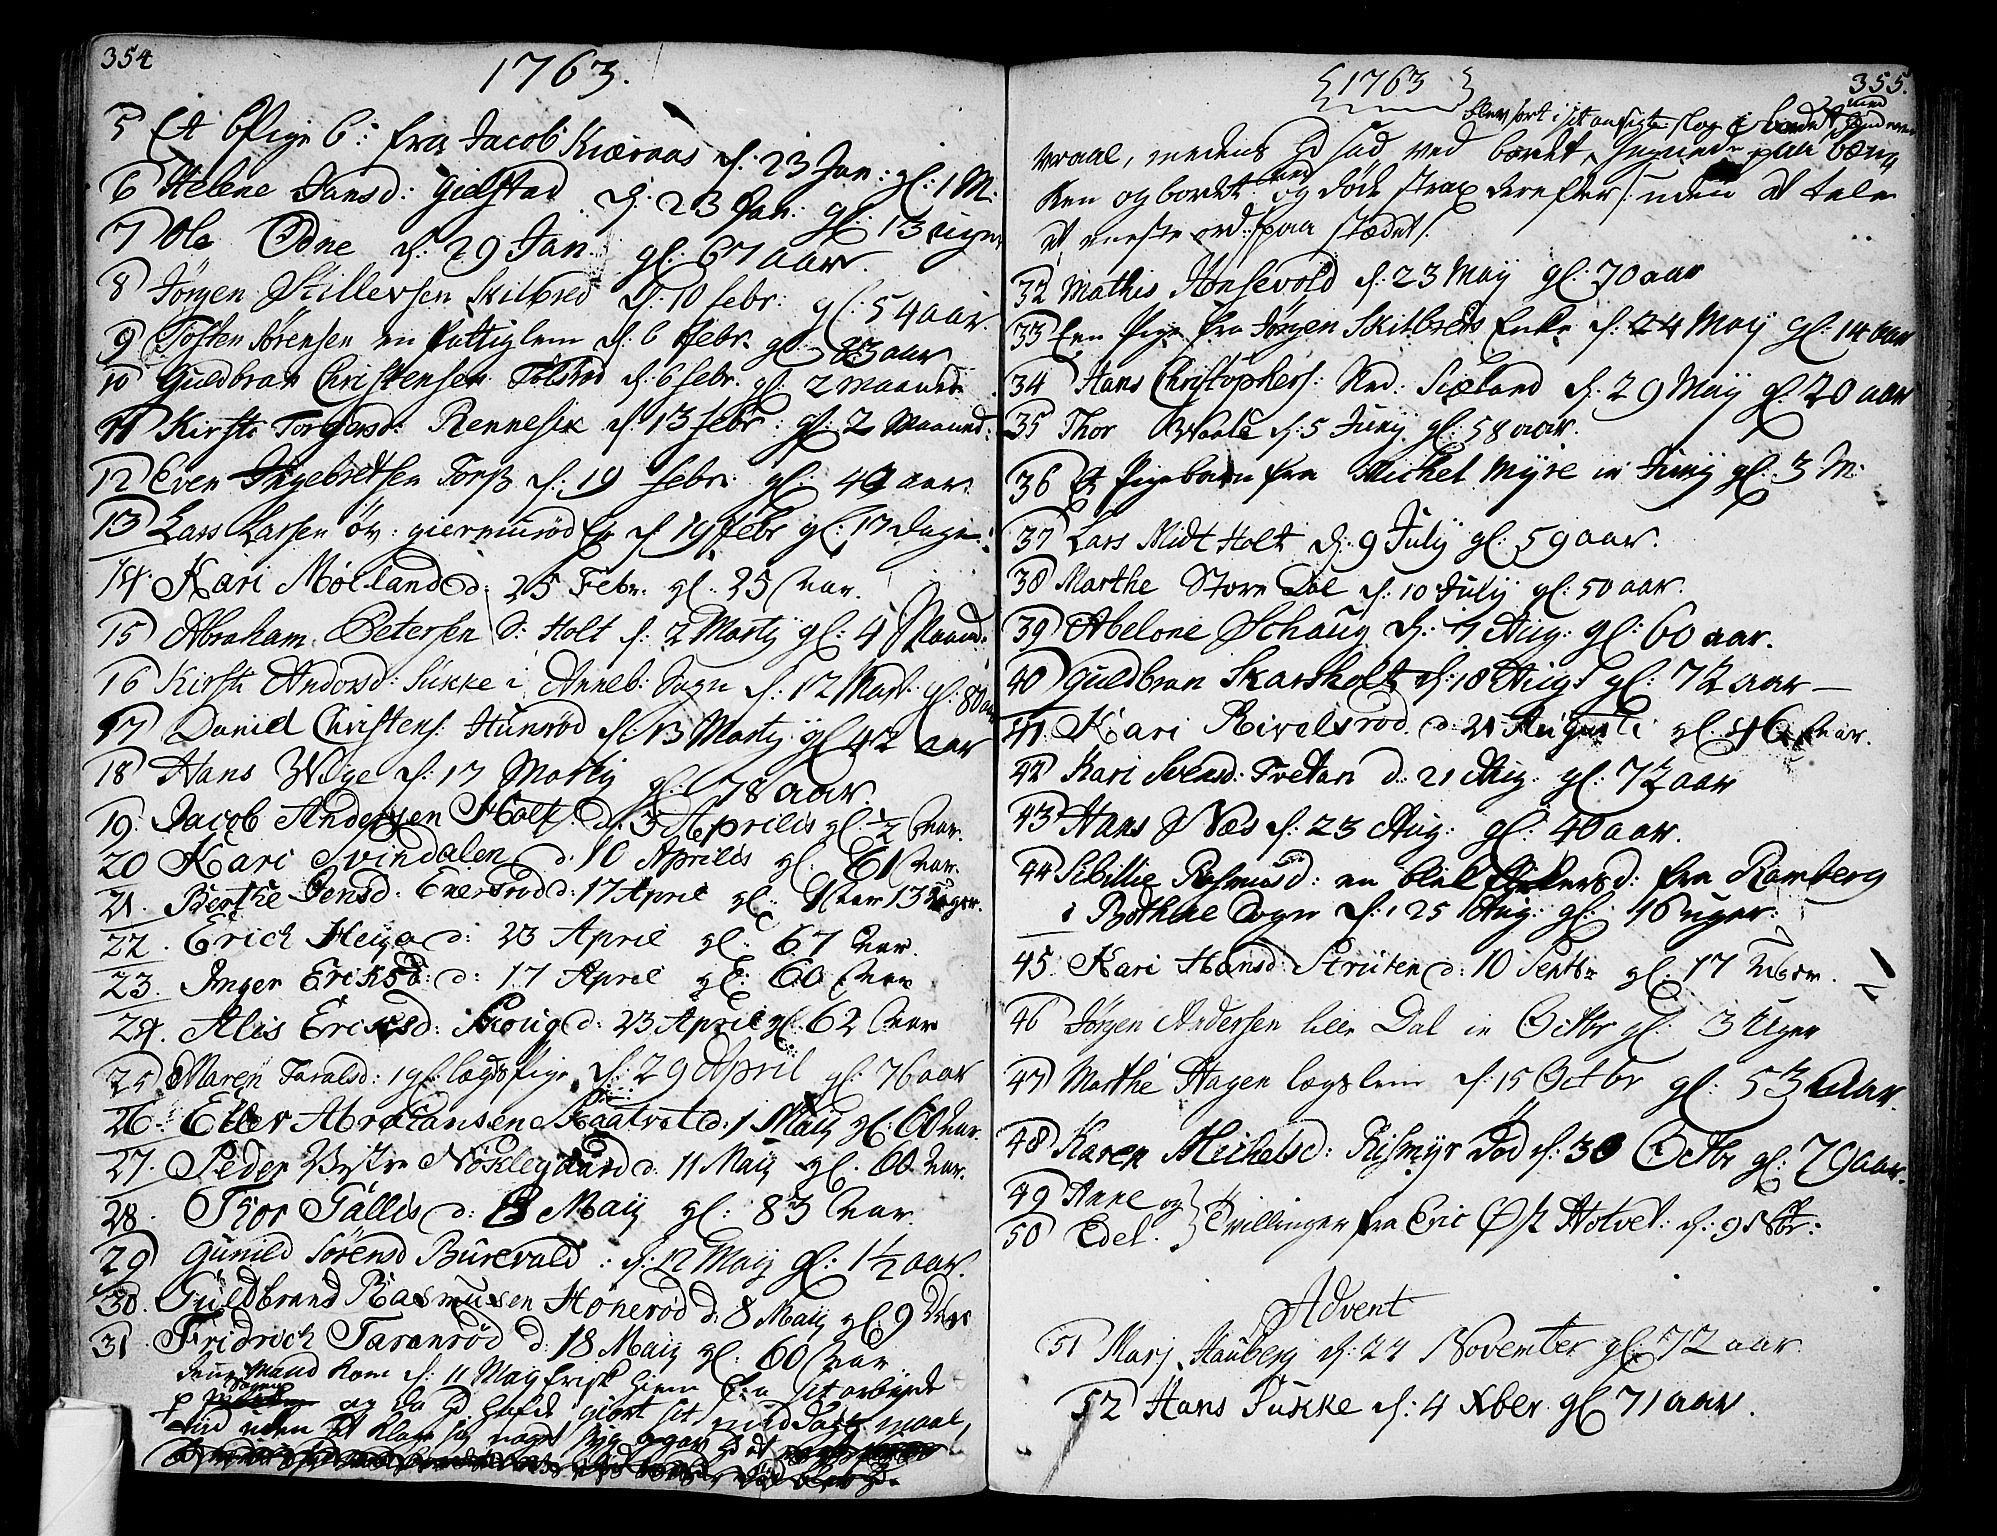 354
1763.
5 Et Pige b: fra Jacob Kiærnaas d: 23 Jan: gl: 1 M:
6 Helene Hansd: Gielstad d: 23 Jan: gl: 13 uger
7 Ole Odne d: 29 Jan gl: 67 aar.
8 Jørgen Skilbred d: 10 febr: gl: 54 aar.
9 Tosten Sørensen en fattiglem d: 6 febr. gl: 83 aar
10 Guldbran Christensen d: 6 febr. gl: 2 maaneder
11 Kirsti Torgersd: Rennesik d: 13 febr: gl: 2 Maaned:
12 Even Ingebretsen Torp d: 19 febr: gl: 40 aar.
13 Lars Larsen øv: giermurød d 19 febr gl: 17 dage:
14. Kari Mølland d: 25 Febr. gl. 25 Aar.
15 Abraham Petersen S: Holt d: 2 Martij gl: 4 Maaned:
16 Kirsti Andersd: Sukke i Anneb: Sogn d: 12 Mart. gl: 80 aar
17 Daniel Christens: Hunsrød d: 13 Martij gl 42 aar
18 Hans Wige d: 17 Martij gl: 78 aar.
19. Jacob Andersen Holt d: 3 Aprilis gl: ½ Aar.
20 Kari Svindalen d. 10 Aprilis gl. 61 Aar.
21. Berthe Jensd. Enersrød d: 17 April gl: 1 Aar 13 Uger.
22. Erich Heya d: 23 April gl: 67 Aar.
23. Inger Eriksd: d: 17 April gl: 60 Aar
24. Alis Eriksd: Skoug d: 23 April gl. 62 Aar
25 Maren Taralsd: lægdspige d: 29 April gl: 76 aar
26. Eller Abrahamsen Skaatvet d: 1 Maij gl: 60 Aar.
27. Peder Nøklegaard d. 11 Maij gl. 60 Aar.
28. Thor Tallis d: 8 Maij gl: 83 Aar.
29 Gunild Sørensd Burevald: d: 12 Maij gl: 1½ aar.
30. Guldbrand Rasmusen Hønerød d: 8 Maij gl: 9 Uger
31 Fridrich Taranrød d: 18 Maij gl: 60 Aar
denne Mand kom d: 11 Maij frisk hiem fra sit arbeyde
og da hd hafde giort sit maal,
uden at klage sig noget
{1763} 355.
blev sort i sit ansigte slog med
vraal, medens hd sad ved bordet paa bæn
ken og bordet og døde strax derefter uden at tale
et eneste ord paa stædet.
32 Mathis Honsevold d: 23 Maij gl: 70 aar
33 Een Pige fra Jørgen Skilbreds Enke d: 24 Maij gl: 14 aar
34 Hans Christophers: Ned: Siæland d: 29 Maij gl: 20 aar
35 Thor Waale d: 5 Junij gl: 58 aar.
36 Et Pigebarn fra Michel Myre in Junij gl: 3 M:
37 Lars Midt Holt d: 9 Julij gl: 59 aar.
38 Marthe Store Dal d: 10 Julij gl: 50 aar.
39 Abelone Schaug d: 7 Aug: gl: 60 aar.
40 Guldbran Skarsholt d: 18 Aug: gl: 72 aar —
41. Kari Rivelsrød d: 21 Augusti gl. 46 Aar.
42 Kari Svensd: Tvetan d: 21 Aug: gl: 72 aar
43 Hans Næs d: 23 Aug: gl: 40 aar.
44 Sibillie Rasmusd: en fra Ramberg
i Bothne Sogn d: 25 Aug: gl: 16 uger.
45. Kari Hansd: Struten d: 10 Septbr gl. 17 Uger.
46 Jørgen Andersen lille Dal in Octbr gl: 3 Uger
47 Marthe Hagen lægslem d: 15 Octbr gl: 53 Aar.
48 Karen Michelsd: Rismyr død d: 30 Octbr gl: 79 aar.
49 Anne og
50 Edel. } Tvillinger fra Eric Øst Hotvet: d: 9 Nbr:
Advent
51 Marj Hauberg d: 27 November gl: 72 aar.
52 Hans Sukke d: 4 Xber gl 71 aar.